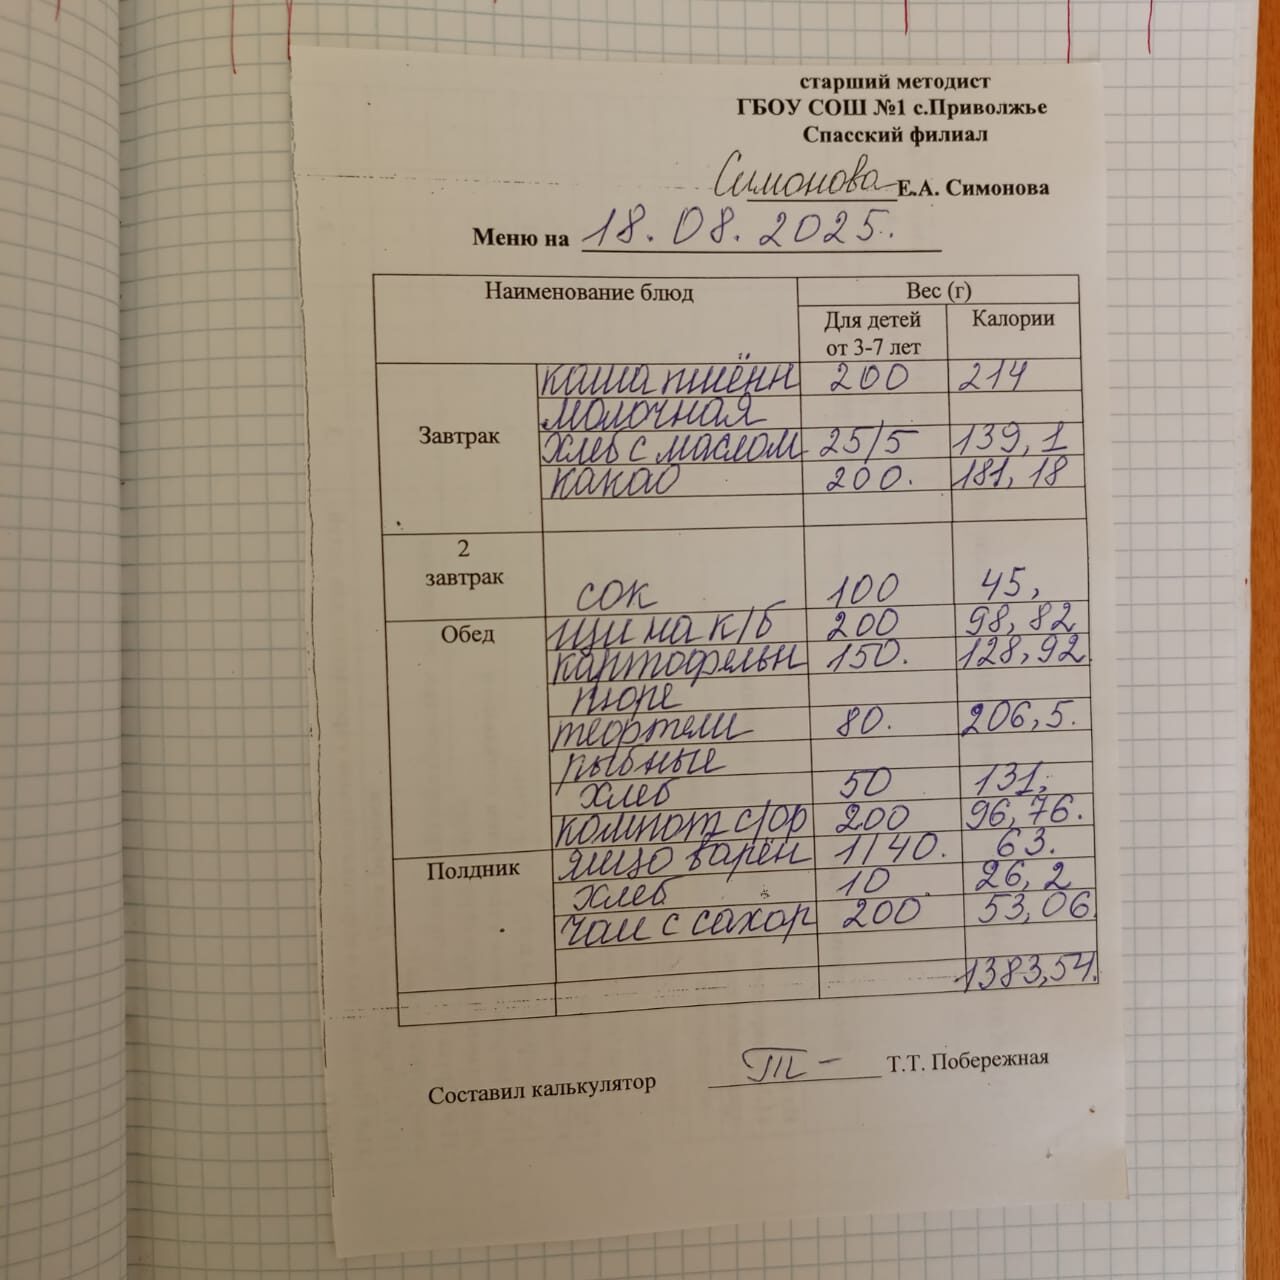 старший методист
ГБОУ СОШ №1 с.Приволжье
Спасский филиал
Симонова Е.А. Симонова
Меню на 18.08.2025.
Наименование блюд Вес (г)
Для детей от 3-7 лет Калории
Завтрак
каша пшённ 200 214
молочная
хлеб с маслом 25/5 139,1
какао 200. 181,18
2 завтрак
сок 100 45,
Обед
щи на к/б 200 98,82
картофельн 150. 128,92.
пюре
тефтели 80. 206,5.
рыбные
хлеб 50 131,
компот с/фр 200 96,76.
Полдник
яйцо варён 1/40. 63.
хлеб 10 26,2
чай с сахар 200 53,06.
1383,54.
Составил калькулятор Т.Т. Побережная